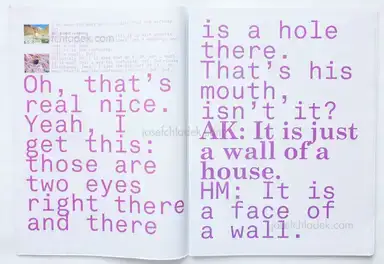 Oh, that's
real nice.
Yeah, I
get this:
those are
two eyes
right there
and there
is a hole
there.
That's his
mouth,
isn't it?
AK: It is just
a wall of a
house.
HM: It is
a face of
a wall.
josefchladek.com
josefchladek.com
josefchladek.com